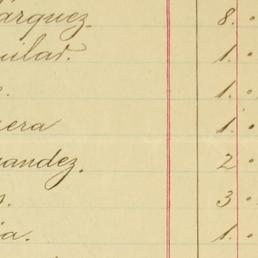 árquez. 8.
uilar. 1.
. 1.
era 1.
nandez. 2
s. 3
ia. 1.